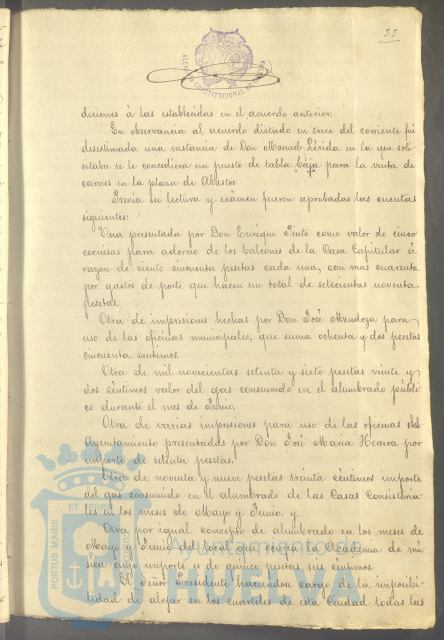 33
ALCALDIA CONSTITUCIONAL DE HUELVA
diciones á las establecidas en el acuerdo anterior.
En observancia al acuerdo dictado en trece del corriente fué
desestimada una instancia de Don Manuel en la que soli-
citaba se le concediera un puesto de tabla baja para la venta de
carnes en la plaza de Abastos.
Previa su lectura y exámen fueron aprobadas las cuentas
siguientes:
Una presentada por Don Enrique Pinto como valor de cinco
cornisas para adorno de los balcones de la Casa Capitular á
razon de ciento cincuenta pesetas cada una, con mas cuarenta
por gastos de porte que hacen un total de setecientas noventa
pesetas.
Otra de impresiones hechas por Don José Mendoza para
uso de las oficinas municipales, que suma ochenta y dos pesetas
cincuenta centimos.
Otra de mil novecientas setenta y siete pesetas veinte y
dos céntimos valor del gas consumido en el alumbrado públi-
co durante el mes de Junio.
Otra de varias impresiones para uso de las oficinas del
Ayuntamiento presentadas por Don José Maria Herera por
importe de setenta pesetas.
Otra de noventa y nueve pesetas treinta céntimos importe
del gas consumido en el alumbrado de las Casas Consistoria-
les en los meses de Mayo y Junio. y
Otra por igual concepto de alumbrado en los meses de
Mayo y Junio del local que ocupa la Academia de mú-
sica cuyo importe es de quince pesetas seis céntimos.
El señor Presidente haciendose cargo de la imposibi-
lidad de alojar en los cuarteles de esta Ciudad todas las
PORTUS MARIS ET
Ayuntamiento de
HUELVA